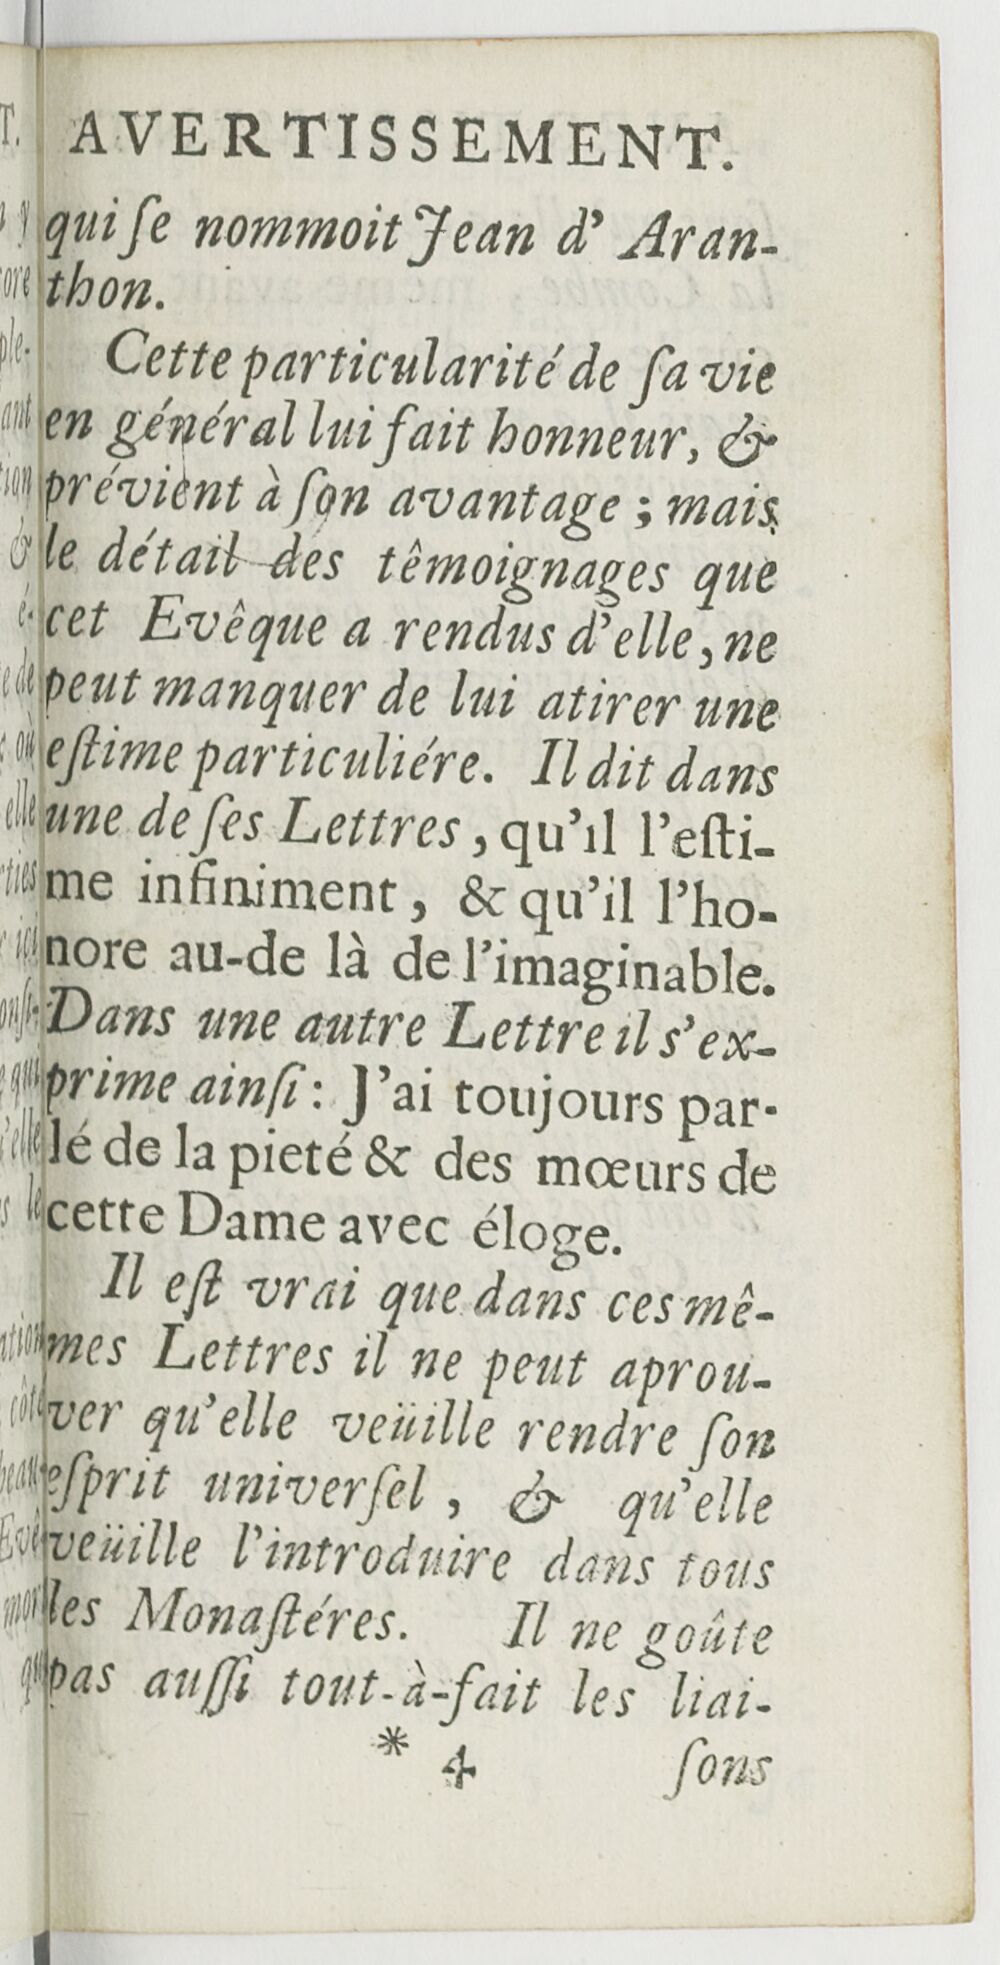 AVERTISSEMENT.
qui ſe nommoit Jean d' Aran-
thon.
Cette particularité de ſa vie
en général lui fait honneur, &
prévient à ſon avantage ; mais
le détail des têmoignages que
cet Evêque a rendus d'elle, ne
peut manquer de lui atirer une
eſtime particuliére. Il dit dans
une de ſes Lettres, qu'il l'eſti-
me infiniment, & qu'il l'ho-
nore au-de là de l'imaginable.
Dans une autre Lettre il s'ex-
prime ainſi : J'ai toujours par-
lé de la pieté & des mœurs de
cette Dame avec éloge.
Il eſt vrai que dans ces mê-
mes Lettres il ne peut aprou-
ver qu'elle veüille rendre ſon
eſprit univerſel, & qu'elle
veüille l'introduire dans tous
les Monaſtéres. Il ne goûte
pas auſſi tout-à-fait les liai-
* 4 ſons